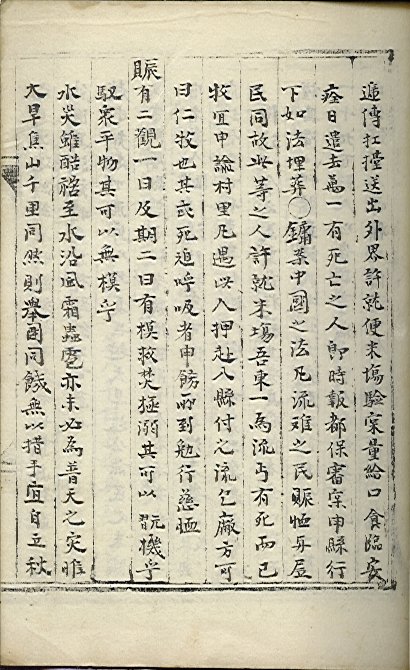 遞傳扛擡送出外界許就便米塲驗宲量給口食臨安
痊日遣去萬一有死亡之人即時報都保審宲申縣行
下如法埋葬〇鏞案中國之法凡流離之民賑恤与居
民同故此等之人許就米塲吾東一爲流丐有死而已
牧宜申諭村里凡遇此人押赴入縣付之流乞廠方可
曰仁牧也其或死迫呼吸者申飭所到勉行慈恤
賑有二觀一曰及期二曰有模救焚拯溺其可以翫機乎
馭衆平物其可以無模乎
水災雖酷禍至水沿風霜蟲雹亦未必爲普天之災唯
大旱焦山千里同然則擧國同饑無以措手宜自立秋